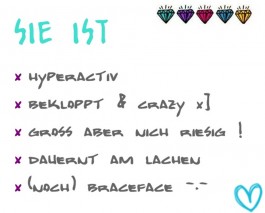 SIE IST
x HYPERACTIV
x BEKLOPPT & CRAZY x]
x GROSS ABER NICH RIESIG !
x DAUERNT AM LACHEN
x (NOCH) BRACEFACE -.-